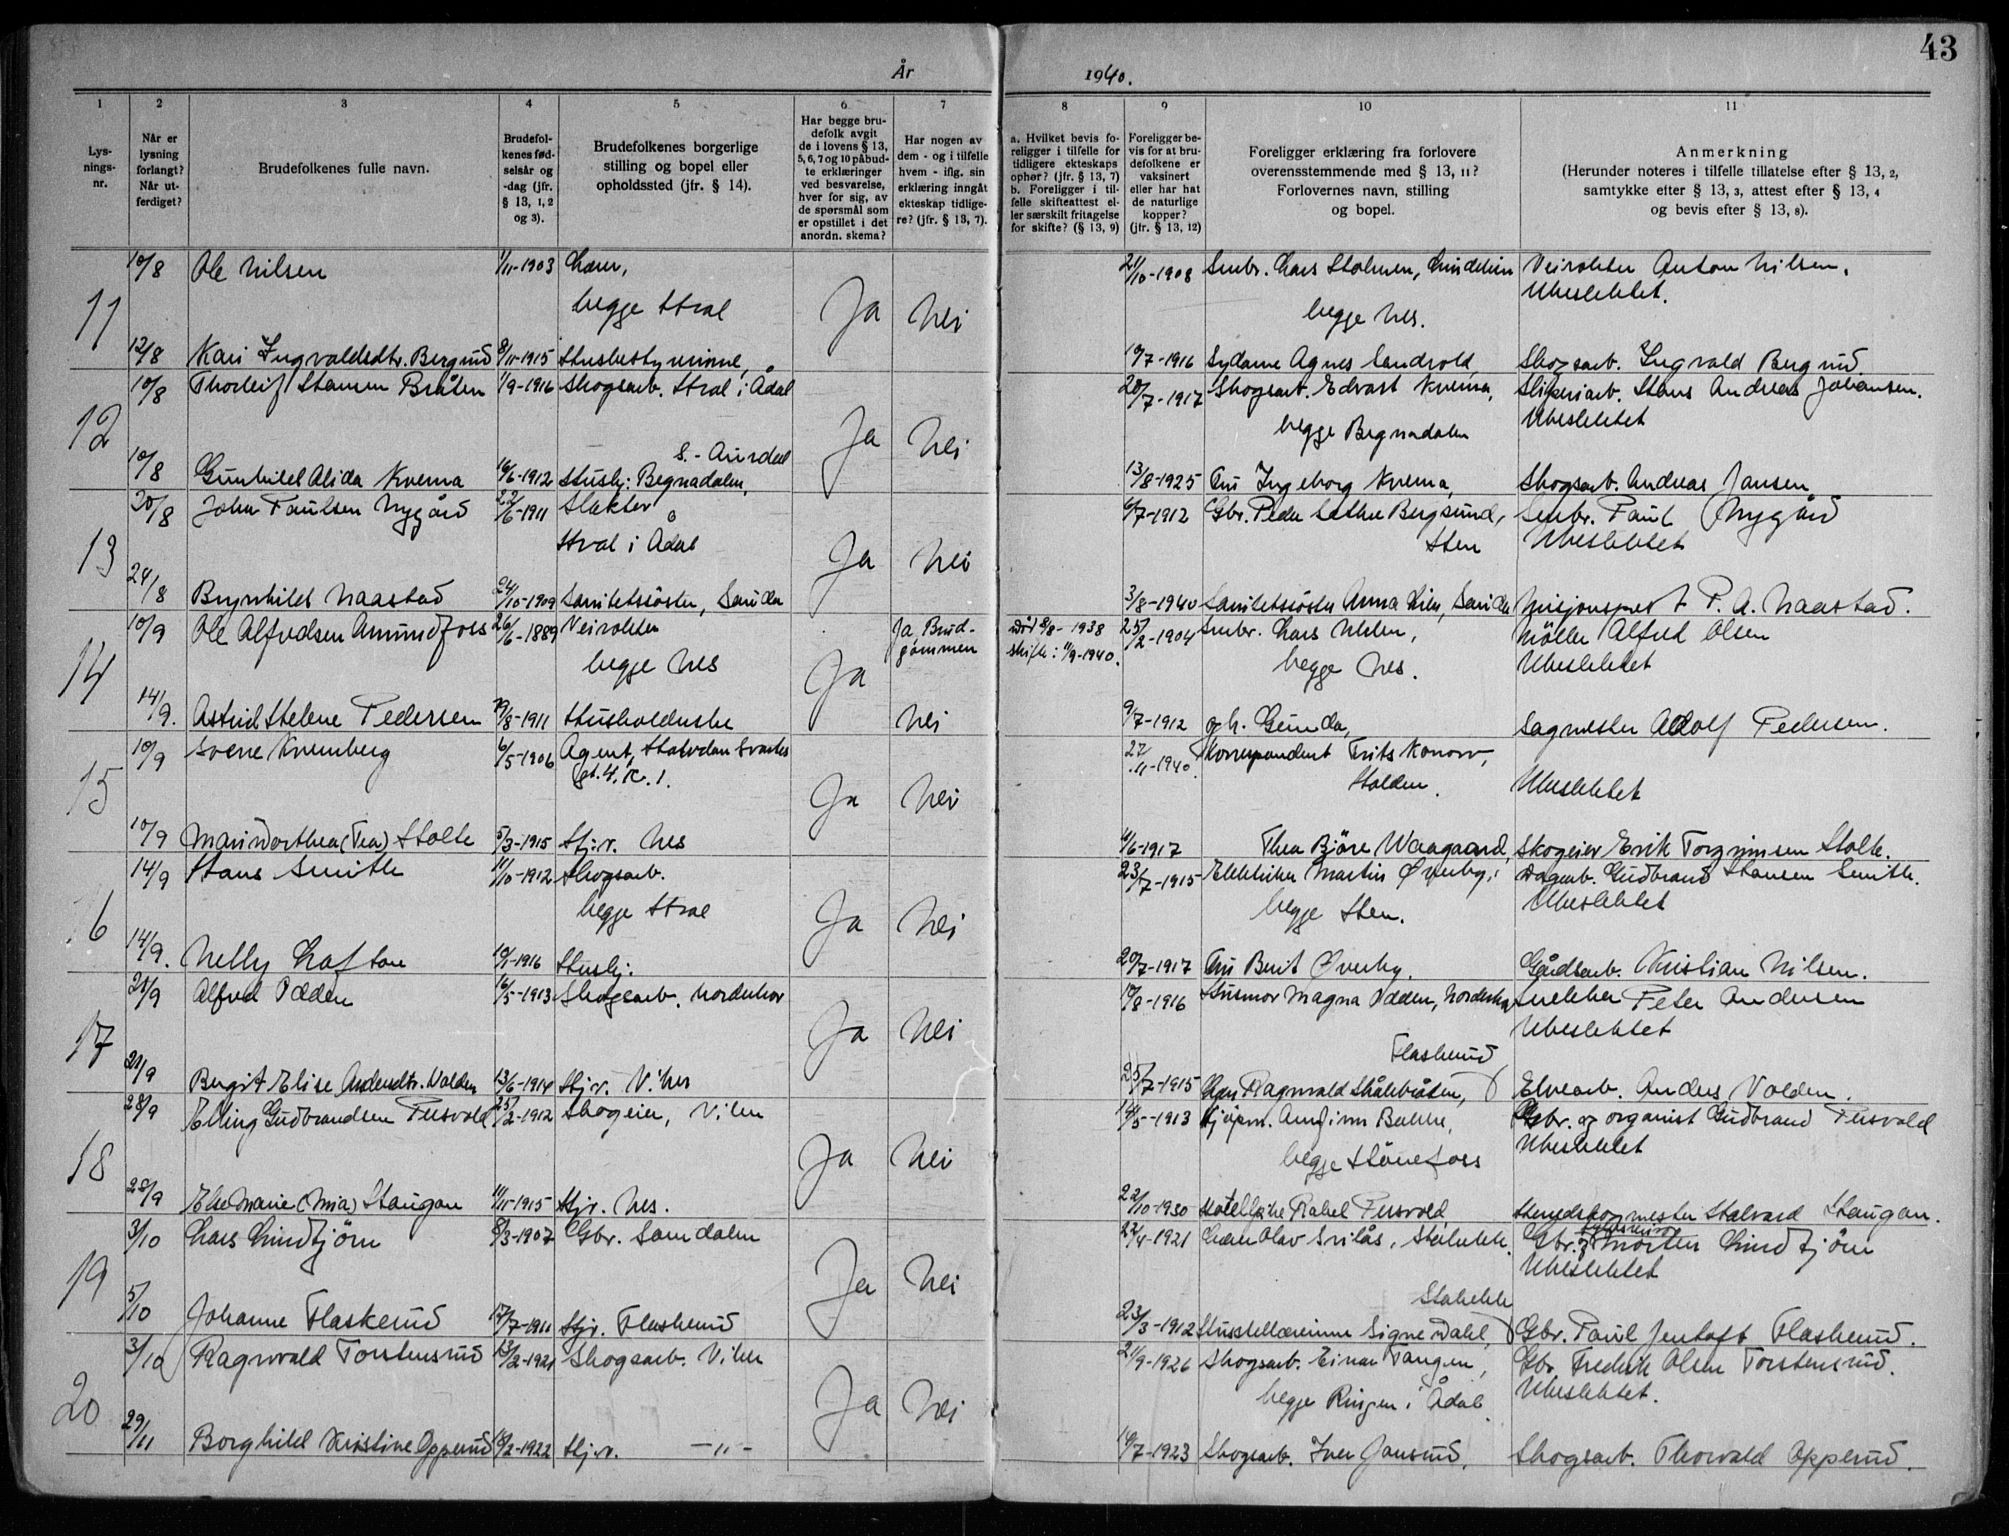 43
År 1940.
1 2 3 4 5 6 7 8 9 10 11
Lys-
nings-
nr.
Når er
lysning
forlangt?
Når ut-
ferdiget?
Brudefolkenes fulle navn.
Brudefol-
kenes fød-
selsår og
-dag (jfr.
§ 13, 1, 2
og 3).
Brudefolkenes borgerlige
stilling og bopel eller
opholdssted (jfr. § 14).
Har begge bru-
defolk avgit
de i lovens § 13,
5, 6, 7 og 10 påbud-
te erklæringer
ved besvarelse,
hver for sig, av
de spørsmål som
er opstillet i det
anordn. skema?
Har nogen av
dem - og i tilfelle
hvem - iflg. sin
erklæring inngåt
ekteskap tidlige-
re? (jfr. § 13, 7).
a. Hvilket bevis fo-
religger i tilfelle for
tidligere ekteskaps
ophør? (jfr. § 13, 7)
b. Foreligger i til-
felle skifteattest el-
ler særskilt fritagelse
for skifte? (§ 13, 9)
Foreligger be-
vis for at bru-
defolkene er
vaksinert
eller har hat
de naturlige
kopper?
(jfr. § 13, 12)
Foreligger erklæring fra forlovere
overensstemmende med § 13, 11?
Forlovernes navn, stilling
og bopel.
Anmerkning
(Herunder noteres i tilfelle tillatelse efter § 13, 2,
samtykke efter § 13, 3, attest efter § 13, 4
og bevis efter § 13, 8).
10/8 Ole Nilsen 1/11-1903 21/10-1908 Smbr. Lars Veivokter Anton Nilsen.
11 begge Hval Ja Nei begge Nes. Ubeslektet.
12/8 Kari Ingvaldsdtr. Bergsud 8/11-1915 Husbestyrerinne, 10/7-1916 Sydame Agnes Sandvold, Skogsarb. Ingvald Bergsud.
10/8 Thorleif Hansen Bråten 1/9-1916 Skogsarb. Hval i Ådal 20/7-1917 Skogsarb. Edvart Kverna, Sliperiarb. Hans Andreas Johansen.
12 Ja Nei begge Begnadalen Ubeslektet
S.-Aurdal
10/8 Gunhild Alida Kverna 16/6-1912 Husby: Begnadalen, 13/8-1925 Fru Ingeborg Kverna, Skogsarb. Andreas Jansen
20/8 John Paulsen Nygård 22/6-1911 Slakter 6/7-1912 Gbr. Peder Bergsund, Smbr. Paul Nygård
13 Hval i Ådal Ja Nei Sten Ubeslektet
24/8 Brynhild Naastad 24/10-1909 Sanitetssöster, Sauda 3/8-1940 Sanitetssöster Anna Lien, Sauda Misjonsprest P. A. Naastad.
10/9 Ole Alfredsen Amundfoss 26/6-1889 Veivokter Ja, Brud-
gommen Död 8/8-1938
skifte: 11/9-1940. 25/2-1904 Smbr. Lars Möller Alfred Olsen
14 begge Nes Ja begge Nes. Ubeslektet
14/9. Astrid Helene Pedersen 19/8-1911 Husholderske Nei 9/7-1912 gh. Gunda, Sagmester Adolf Pedersen.
10/9 Sverre Kvernberg 6/5-1906 Agent, Halvdan Svartes
gt. 4, K. 1. 27/11-1940. Korrespondent Frits Konow,
15 Ja Nei Halden. Ubeslektet
10/9 Mari Dorthea (Tea) Stolte 5/3-1915 Hj.v. Nes 4/6-1917 Thea Björe Waagaard, Skogeier Erik Torgrimsen Stolte.
14/9 Hans Smith 11/10-1912 Skogsarb. 23/7-1915 Elektriker Martin Øverby, Dagarb. Gudbrand Hansen Smith.
16 begge Hval Ja Nei begge Sten. Ubeslektet
14/9. Nelly Loftsen 10/1-1916 Husbj. 20/7-1917 Fru Berit Øverby. Gårdsarb. Kristian Nilsen.
21/9 Alfred Odden 16/5-1913 Skogsarb. Norderhov 10/8-1916 Husmor Magna Odden, Norderhov Snekker Peter Andersen
17 Ja Nei Ubeslektet
Flaskerud
21/9 Bergit Elise Andersdtr. Volden 13/6-1914 Hj.v. Viker 25/7-1915 Ragnvald Skålebråten, Elvearb. Anders Volden.
28/9 Elling Gudbrandsen Piisvold 25/2-1912 Skogeier, Viker 14/5-1913 Arnfinn Bakke, Gbr. og organist Gudbrand Piisvold
18 Ja Nei begge Hönefoss Ubeslektet
28/9 Else Marie (Mia) Haugan 11/11-1915 Hj.v. Nes. 22/10-1930 Rakel Piisvold Herredskogmester Halvard Haugan.
3/10 Lars Lindtjörn 8/3-1907 Gbr. Somdalen 22/4-1921 Olav Gbr. Morten Lindtjörn
19 Ja Nei Ubeslektet
5/10 Johanne Flaskerud 17/7-1911 Hj.v. Flaskerud 23/3-1912 Husstellærerinne Signe Dahl, Gbr. Paul Jentoft Flaskerud.
3/10 Ragnvald Torstensrud 13/2-1921 Skogsarb. Viker 21/9-1926 Skogsarb. Einar Tangen, Gbr Fredrik Olsen Torstensrud.
20 Ja Nei begge Ringen i Ådal. Ubeslektet.
29/11 Borghild Kristine Opperud 18/2-1922 Hj.v. -"- 19/7-1923 Skogsarb. Iver Jansrud. Skogsarb. Thorvald Opperud.